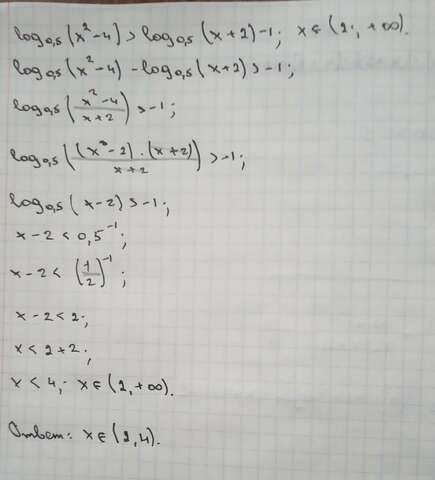 log₀,₅(x²-4) > log₀,₅(x+2)-1; x∈(2; +∞).
log₀,₅(x²-4) - log₀,₅(x+2) > -1;
log₀,₅((x²-4)/(x+2)) > -1;
log₀,₅(((x-2)·(x+2))/(x+2)) > -1;
log₀,₅(x-2) > -1;
x-2 < 0,5⁻¹;
x-2 < (1/2)⁻¹;
x-2 < 2;
x < 2+2;
x < 4; x∈(2,+∞).
Ответ: x∈(2,4).